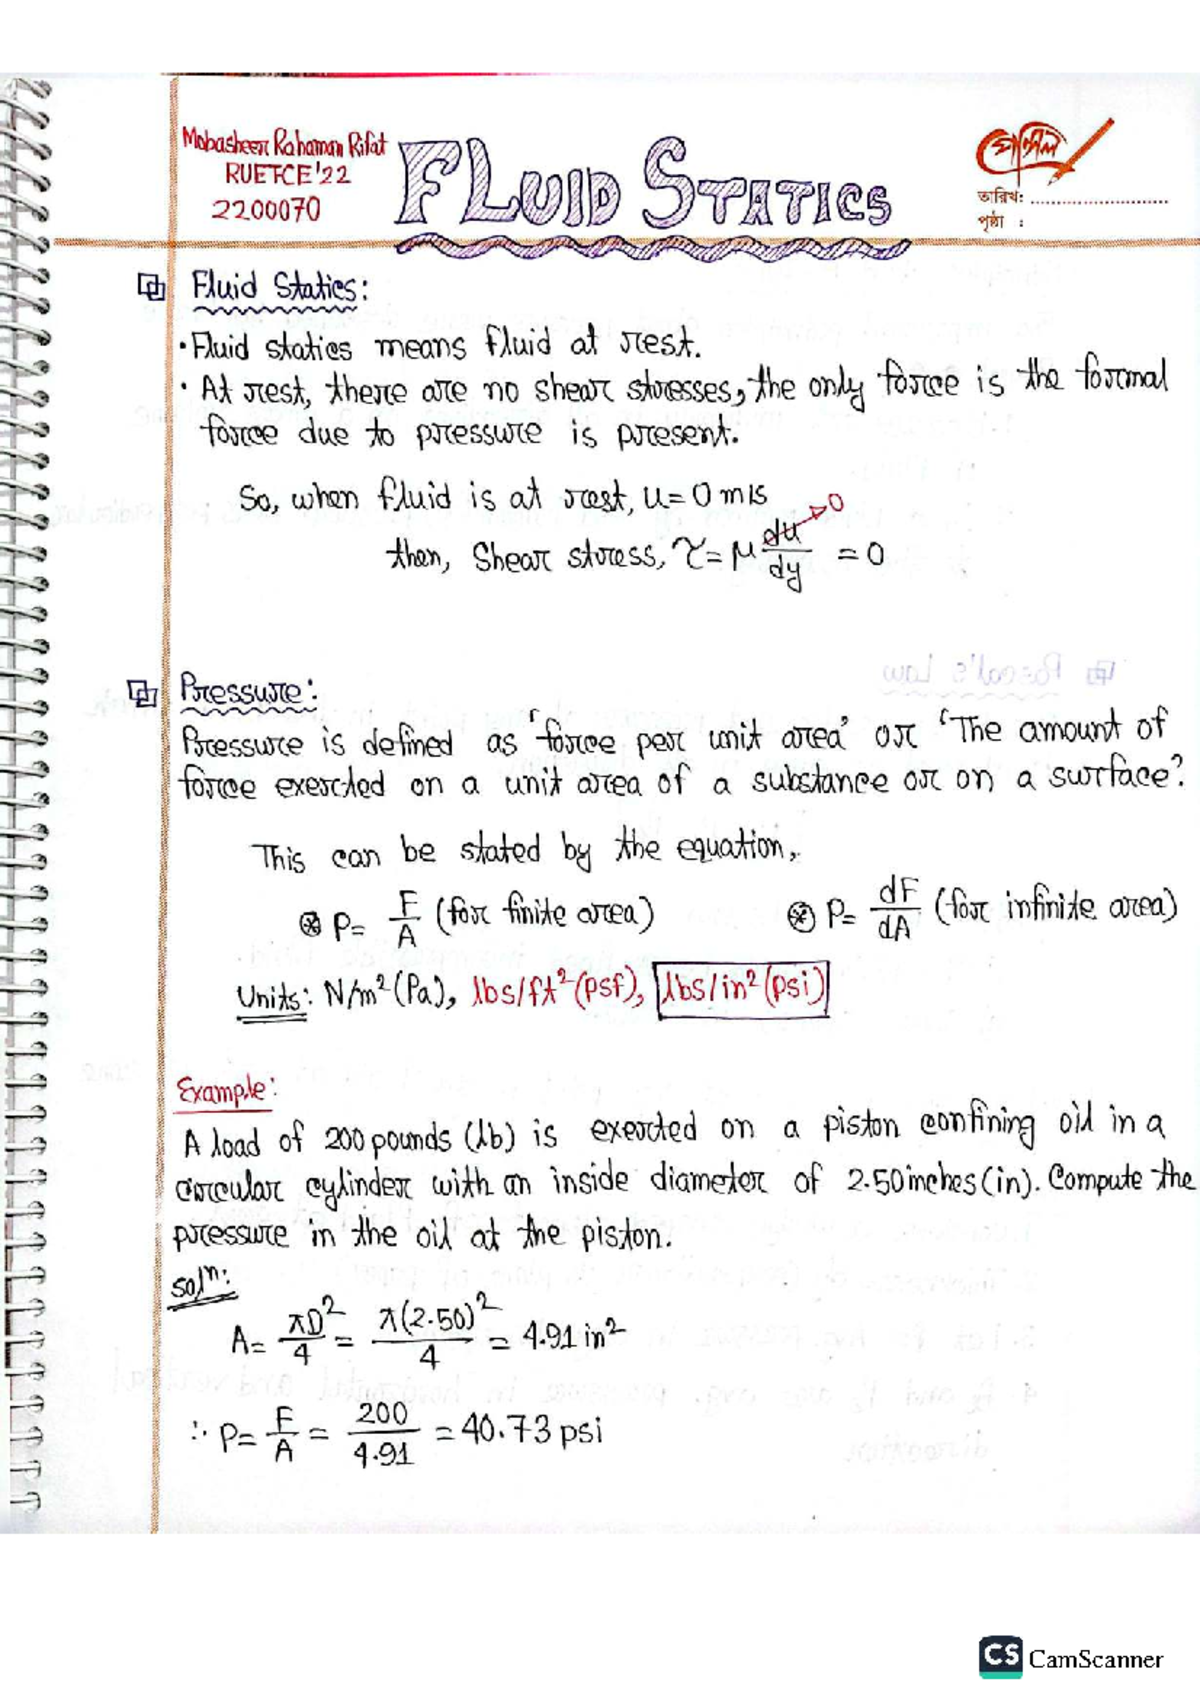 Mobasheer Rahaman Rifat
RUET CE'22
2200070
FLUID STATICS
পেন্সিল
তারিখ: ........................
পৃষ্ঠা :
Fluid Statics:
• Fluid statics means fluid at rest.
• At rest, there are no shear stresses, the only force is the formal
force due to pressure is present.
So, when fluid is at rest, u = 0 m/s
then, Shear stress, τ = μ du/dy → 0 = 0
Pressure:
Pressure is defined as 'force per unit area' or 'The amount of
force exerted on a unit area of a substance or on a surface'.
This can be stated by the equation,
⊛ P = F/A (for finite area) ⊛ P = dF/dA (for infinite area)
Units: N/m² (Pa), lbs/ft² (psf), lbs/in² (psi)
Example:
A load of 200 pounds (lb) is exerted on a piston confining oil in a
circular cylinder with an inside diameter of 2.50 inches (in). Compute the
pressure in the oil at the piston.
Solⁿ:
A = πD²/4 = π(2.50)²/4 = 4.91 in²
∴ P = F/A = 200/4.91 = 40.73 psi
CS CamScanner